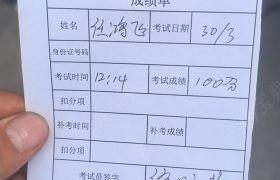 成绩单
姓名 任鸿飞 考试日期 30/3
身份证号码
考试时间 12:14 考试成绩 100分
扣分项
补考时间 补考成绩
扣分项
考试员签字